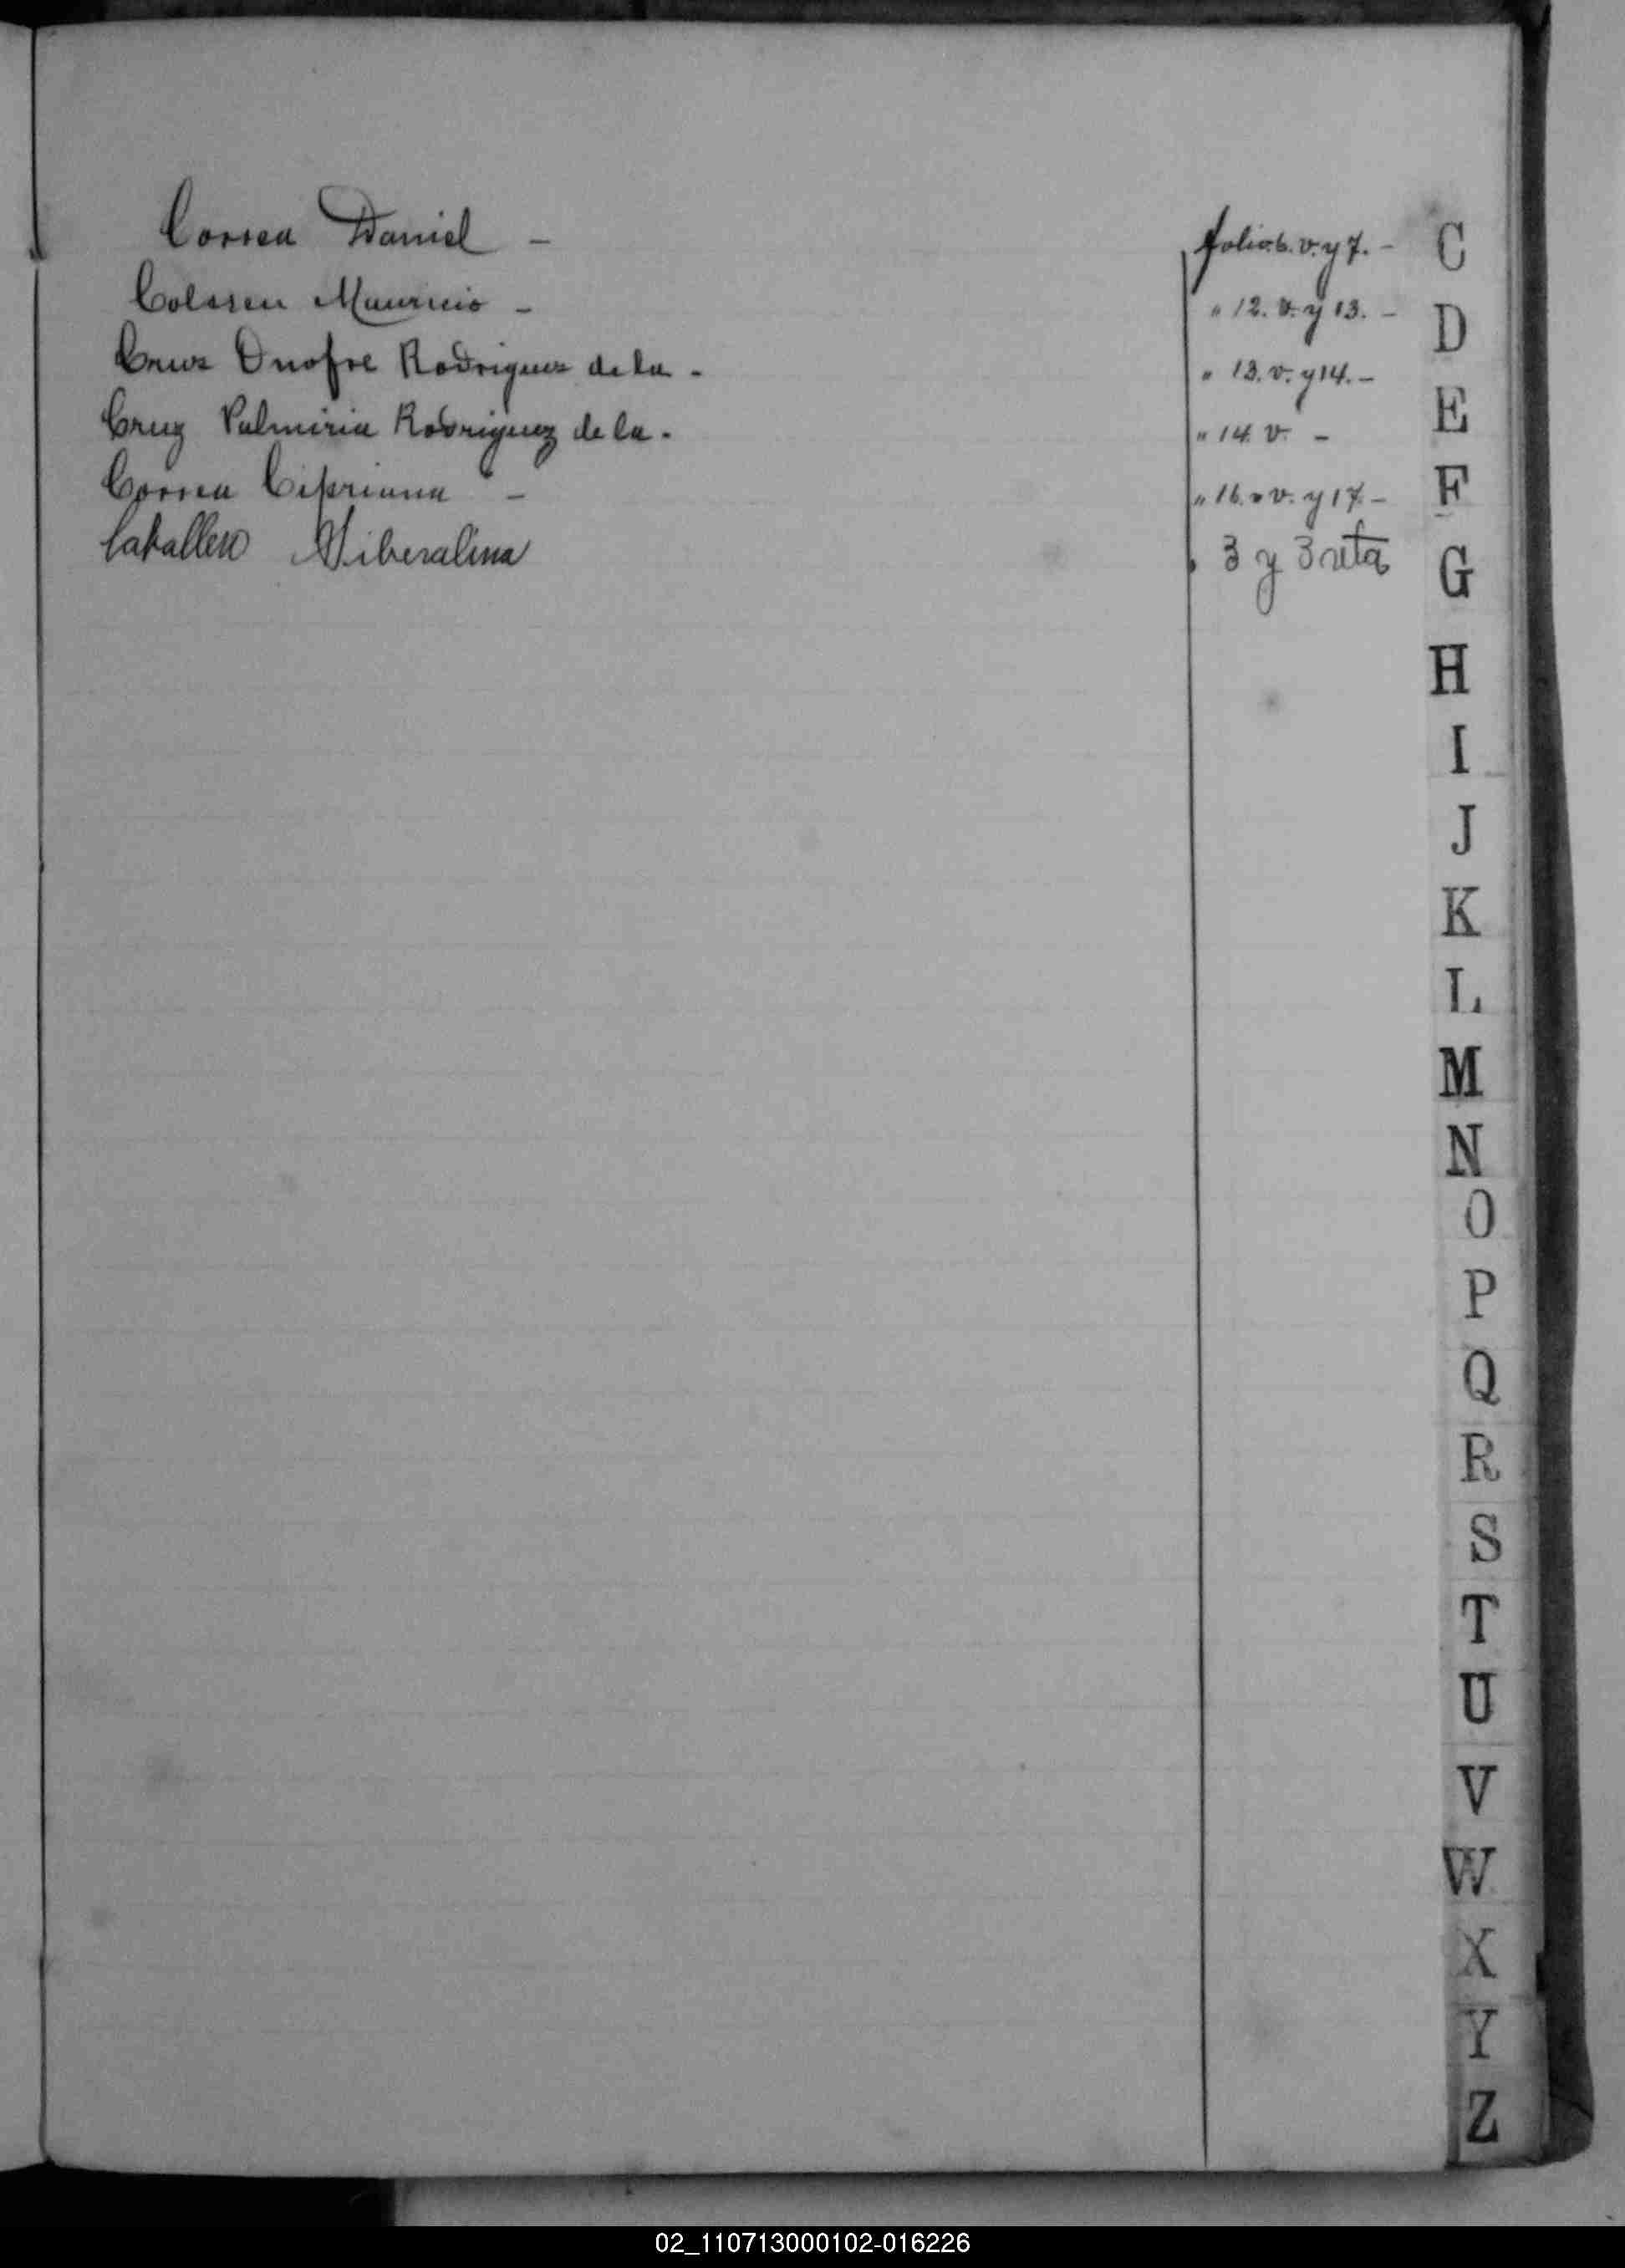 Correa Daniel - folio 6. v. y 7. -
Mauricio - " 12. v. y 13. -
Cruz Onofre Rodriguez de la - " 13. v. y 14. -
Cruz Palmiria Rodriguez de la - " 14. v. -
Correa Cipriana - " 16. v. y 17. -
Caballero Liberalina 3 y 3 vta
C
D
E
F
G
H
I
J
K
L
M
N
O
P
Q
R
S
T
U
V
W
X
Y
Z
02_110713000102-016226